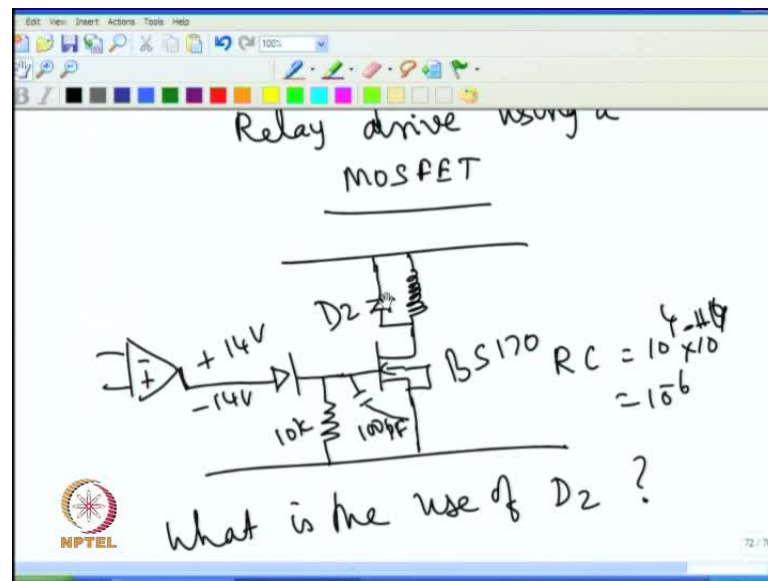 Edit View Insert Actions Tools Help
100%
B I
Relay drive using a
MOSFET
D2
+14V
-14V
BS170
10K
100pF
RC = 10^4 × 10
= 10^-6
What is the use of D2 ?
NPTEL